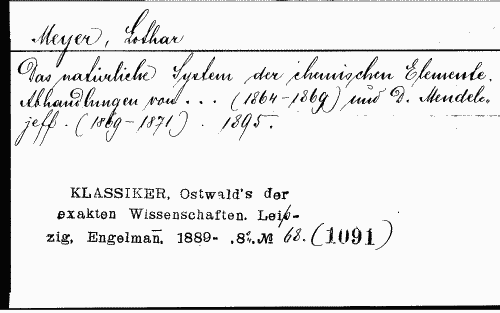 Meyer, Lothar
Das natürliche System der chemischen Elemente.
Abhandlungen von ... (1864-1869) und D. Mendele-
jeff. (1869-1871). 1895.
KLASSIKER, Ostwald's der
exakten Wissenschaften. Leip-
zig, Engelman̅. 1889- .8º.№ 68. (1091)